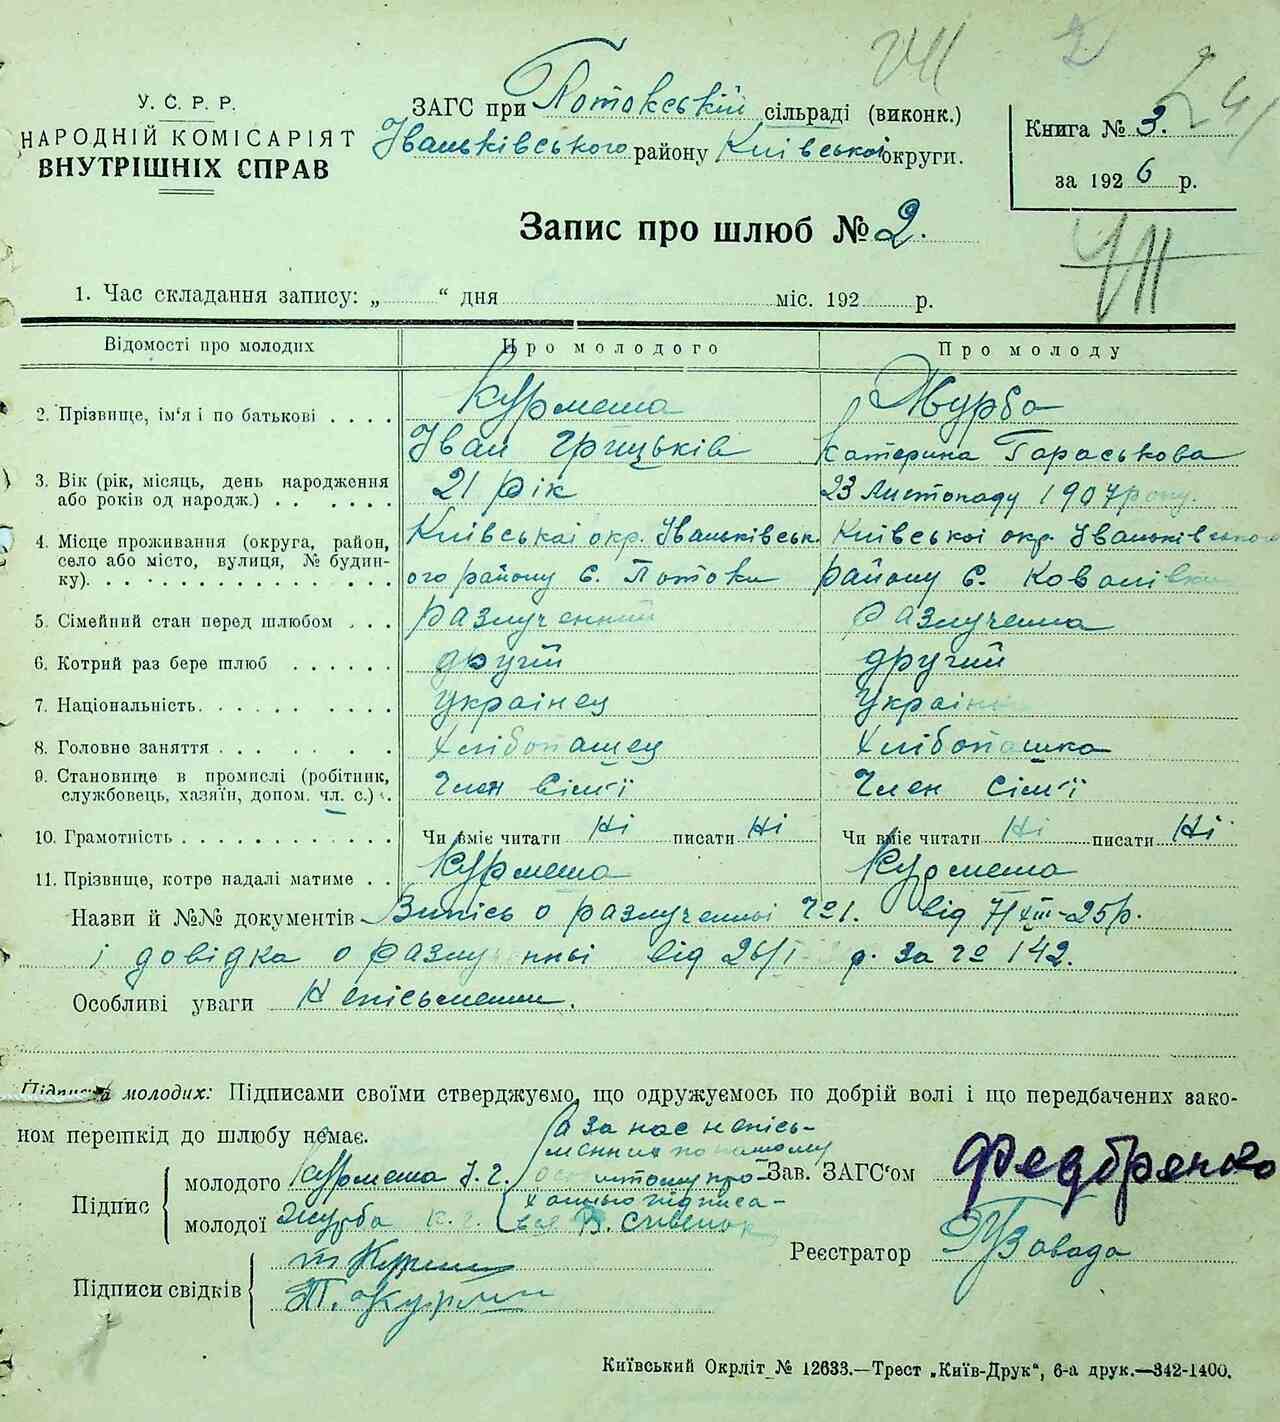 У. С. Р. Р.
НАРОДНІЙ КОМІСАРІЯТ
ВНУТРІШНІХ СПРАВ
ЗАГС при Потокській сільраді (виконк.)
Іваньківського району Київськоі округи.
Книга № 3.
за 1926 р.
Запис про шлюб № 2.
1. Час складання запису: „ “ дня міс. 192 р.
Відомості про молодих Про молодого Про молоду
2. Прізвище, ім'я і по батькові Курмеша Журба
Іван Грицьків Катерина Гараськова
3. Вік (рік, місяць, день народження або років од народж.) 21 рік 23 Листопаду 1907 року.
4. Місце проживання (округа, район, Київськоі окр. Іваньківськ. Київськоі окр. Іваньківського
село або місто, вулиця, № будин-
ку) ого району с. Потоки району с. Ковалівки
5. Сімейний стан перед шлюбом Разлученний Разлучена
6. Котрий раз бере шлюб другій другий
7. Національність українец
8. Головне заняття Хлібопашец Хлібопашка
9. Становище в промислі (робітник, Член Сімʼї Член Сімʼї
службовець, хазяїн, допом. чл. с.)
10. Грамотність Чи вміє читати Ні писати Ні Чи вміє читати Ні писати Ні
11. Прізвище, котре надалі матиме Курмеша Курмеша
Назви й №№ документів Випісь о разлученні № 1. від 7/XII-25р.
і довідка о від 26/I р. за № 142.
Особливі уваги Непісьменни.
Підписи молодих: Підписами своїми стверджуємо, що одружуємось по добрій волі і що передбачених зако-
ном перешкід до шлюбу немає.
а за нас непісь-
менних по нашому
особистому про-
ханню підписа-
вся В.
Підпис
молодого Курмеша І. Г.
молодої Журба К. Г.
Зав. ЗАГС'ом
Реєстратор
Підписи свідків
Київський Окрліт № 12633.—Трест „Київ-Друк“, 6-а друк.—342-1400.